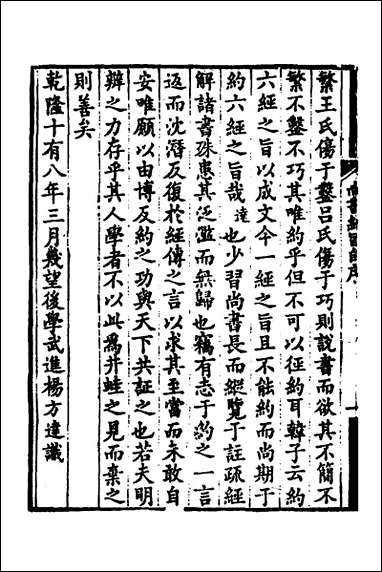 尚書約旨自序
繁王氏傷于鑿呂氏傷于巧則說書而欲其不簡不
繁不鑿不巧其唯約乎但不可以徑約耳韓子云約
六經之旨以成文今一經之旨且不能約而尚期于
約六經之旨哉達也少習尚書長而縱覽于註疏經
解諸書殊患其泛濫而無歸也竊有志于約之一言
返而沈潛反復於經傳之言以求其至當而未敢自
安唯願以由博反約之功與天下共証之也若夫明
辨之力存乎其人學者不以此爲井蛙之見而棄之
則善矣
乾隆十有八年三月幾望後學武進楊方達識